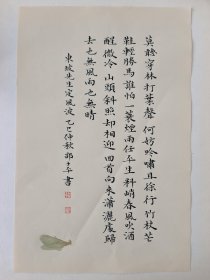 莫聽穿林打葉聲 何妨吟嘯且徐行 竹杖芒
鞋輕勝馬誰怕一蓑煙雨任平生料峭春風吹酒
醒微冷 山頭斜照却相迎 回首向來瀟灑處歸
去也無風雨也無晴
東坡先生定風波 乙巳仲秋 書